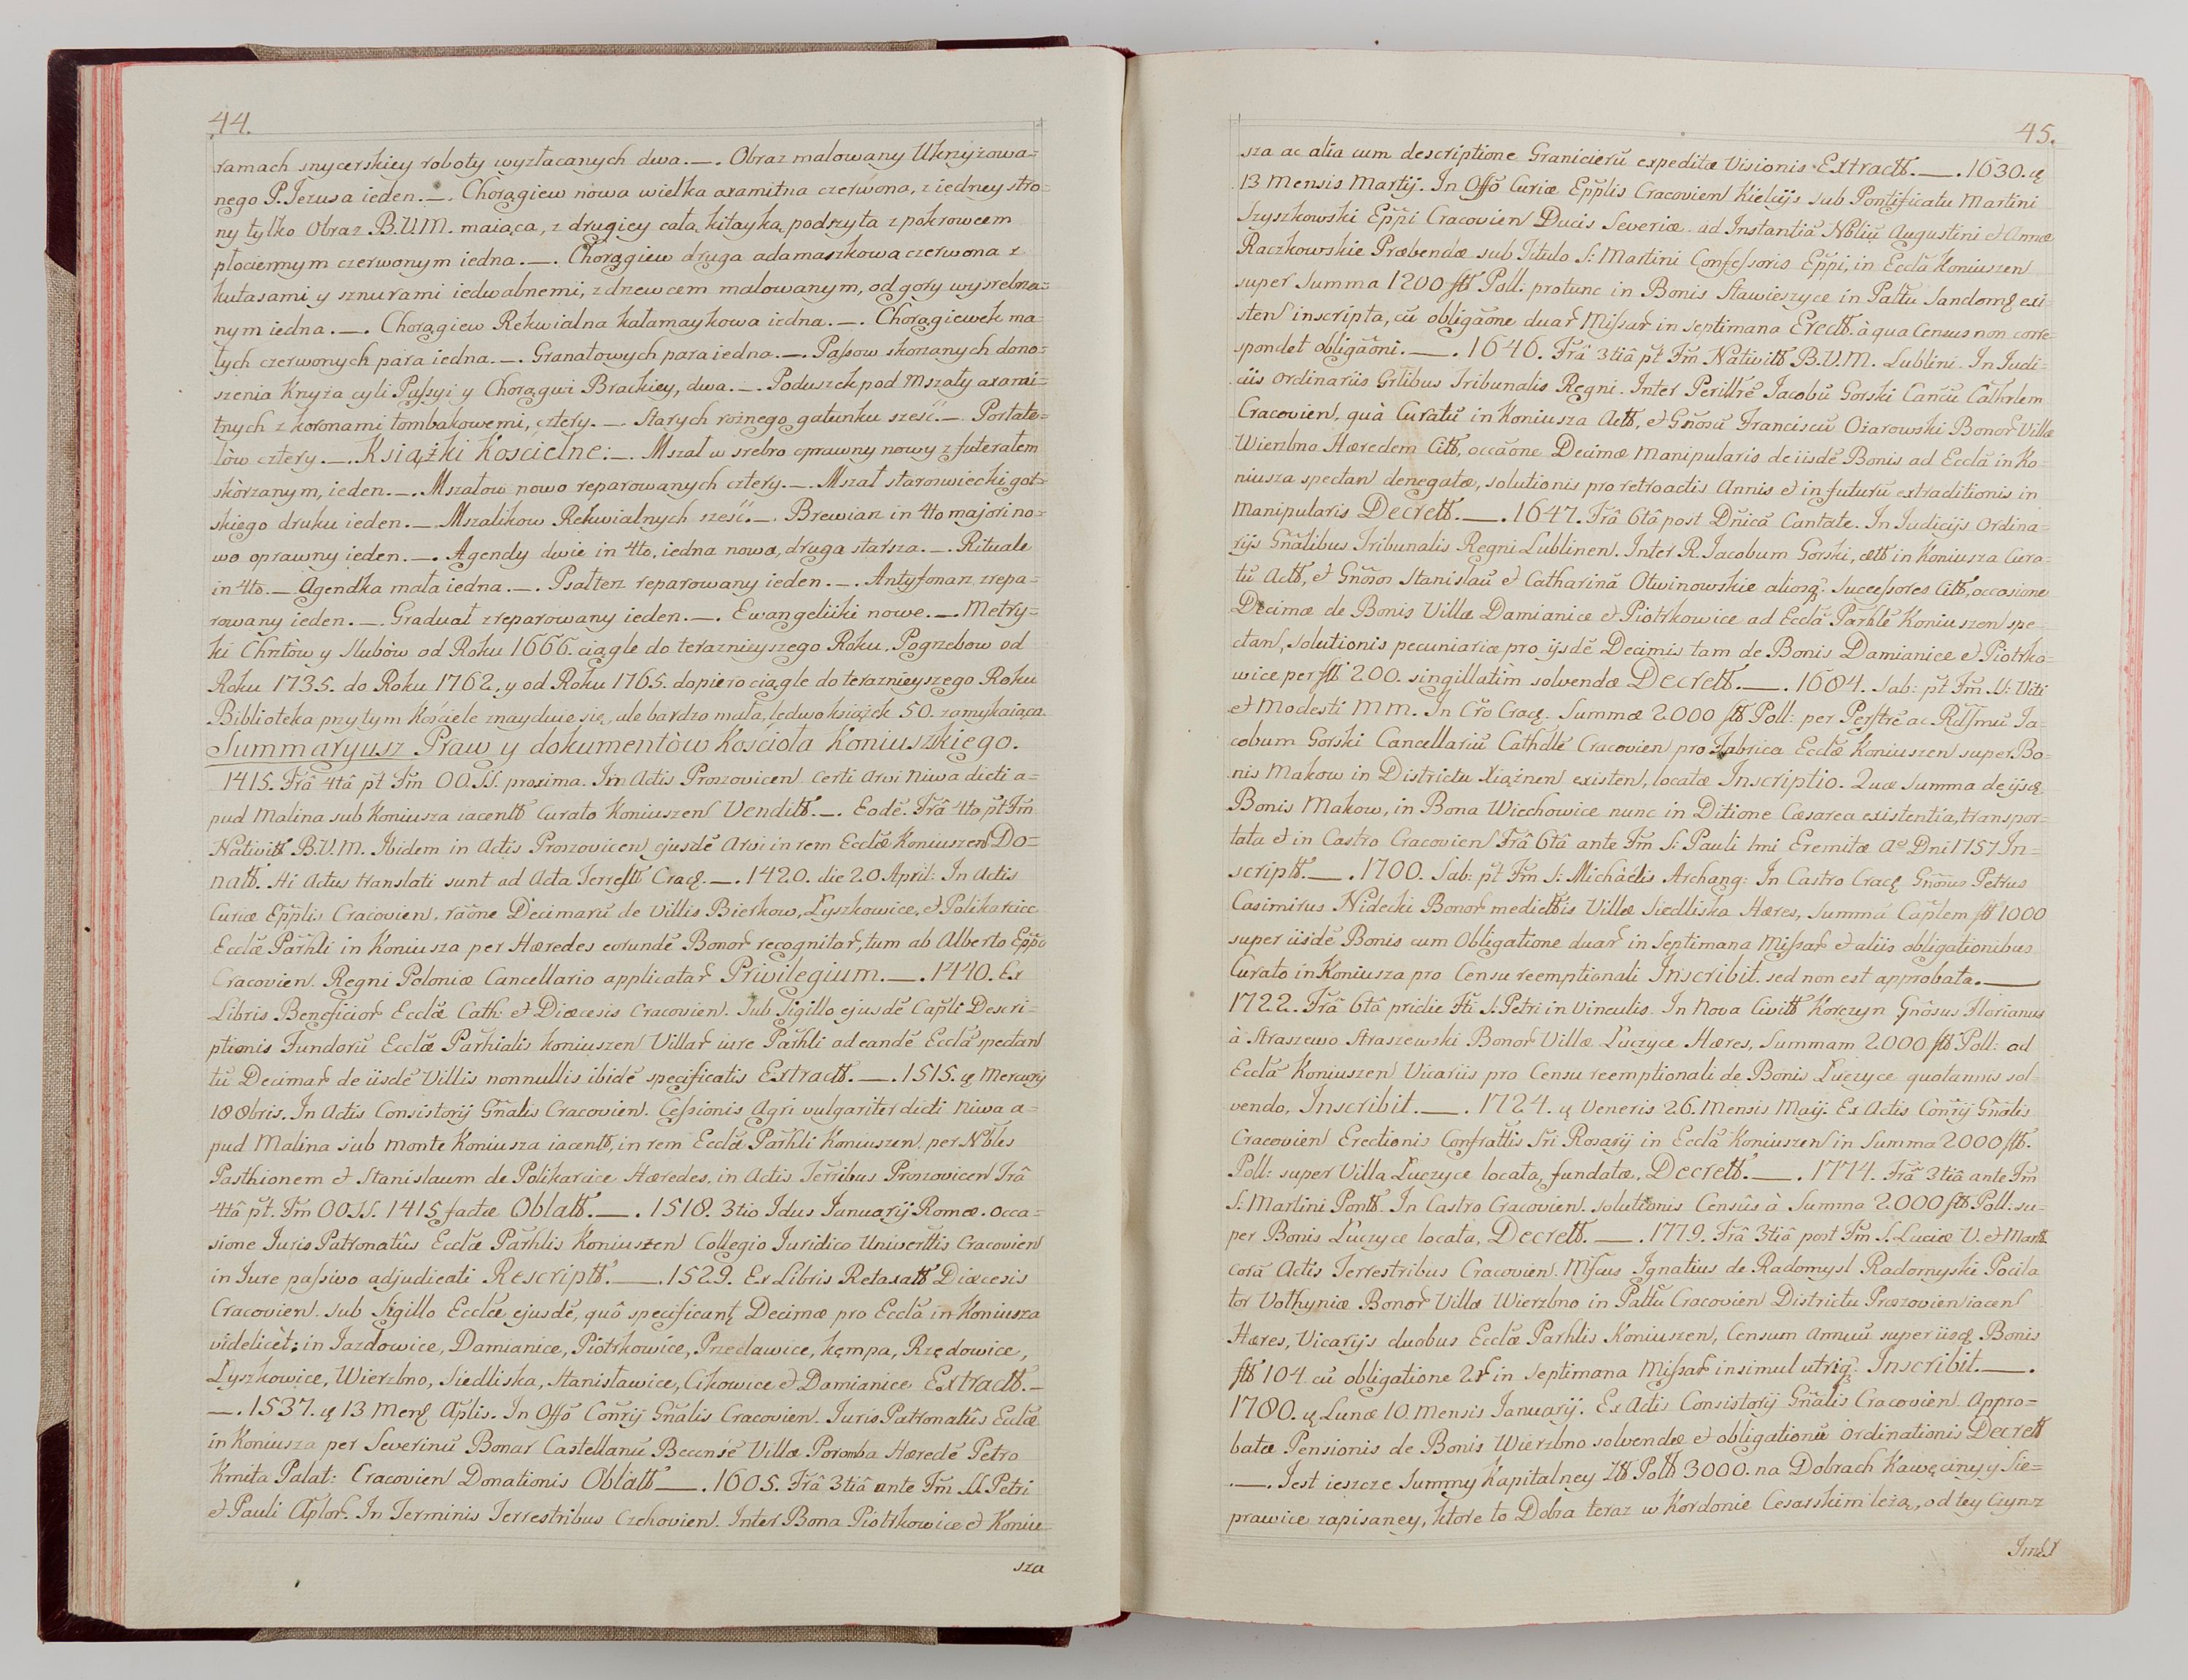 44.
ramach snycerskiey roboty wyzłacanych dwa. —. Obraz malowany Ukrzyżowa=
nego P. Jezusa ieden. —. Chorągiew nowa wielka axamitna czerwona, z iedney stro=
ny tylko Obraz B.V.M. maiąca, z drugiey całą kitayką podszyta z pokrowcem
płóciennym czerwonym iedna. —. Chorągiew druga adamaszkowa czerwona z
kutasami y sznurami iedwabnemi, z drzewcem malowanym, od gory wysrebrza=
nym iedna. —. Chorągiew Rekwialna kałamaykowa iedna. —. Chorągiewek ma=
łych czerwonych para iedna. —. Granatowych para iedna. —. Passow skorzanych do no=
szenia Krzyża cyli Passyi y Chorągwi Brackiey, dwa. —. Poduszek pod Mszały axami=
tnych z koronami tombakowemi, cztery. —. Starych rożnego gatunku sześć. —. Portate=
lòw cztery. —. Książki Koscielne: —. Mszał w srebro oprawny nowy z futerałem
skòrzanym, ieden. —. Mszałow nowo reparowanych cztery. —. Mszał staroswiecki got=
skiego druku ieden. —. Mszalikow Rekwialnych sześć. —. Brewiarz in 4to majori no=
wo oprawny ieden. —. Agendy dwie in 4to, iedna nowa, druga starsza. —. Rituale
in 4to. —. Agendka mała iedna. —. Psałterz reparowany ieden. —. Antyfonarz zrepa=
rowany ieden. —. Graduał zreparowany ieden. —. Ewangeliiki nowe. —. Metry=
ki Chrztòw y Slubòw od Roku 1666. ciągle do teraznieyszego Roku. Pogrzebow od
Roku 1735. do Roku 1762, y od Roku 1765. dopiero ciągle do teraznieyszego Roku
Biblioteka przy tym Kościele znayduie się, ale bardzo mała, ledwo książek 50. zamykaiąca.
Summaryusz Praw y dokumentòw Kościoła Koniuszkiego.
1415. Frâ 4tâ pt Fm OO.SS. proxima. In Actis Proszovicen. Certi Arvi Niwa dicti a=
pud Malina sub Koniusza iacentt Curato Koniuszen Venditt. —. Eodē. Frâ 4to pt Fm
Nativitt B.V.M. Ibidem in Actis Proszovicen ejusdē Arvi in rem Ecclæ Koniuszen Do=
natt. Hi Actus translati sunt ad Acta Terrestt Cracę. —. 1420. die 20 April: In Actis
Curiæ Epplis Cracovien. rãone Decimarū de Villis Bierkow, Łyszkowice, et Polikarcice
Ecclæ Parhli in Koniusza per Hæredes eorundē Bonor recognitar, tum ab Alberto Eppo
Cracovien. Regni Poloniæ Cancellario applicatar Privilegium. —. 1440. Ex
Libris Beneficior Ecclæ Cath: et Diæcesis Cracovien. Sub Sigillo ejusdē Capli Descri=
ptionis Fundorū Ecclæ Parhialis Koniuszen Villar iure Parhli ad eandē Ecclā spectan
tū Decimar de iisdē Villis nonnullis ibidē specificatis Extractt. —. 1515. ę Mercurij
18 8bris. In Actis Consistorij Gñalis Cracovien. Cessionis Agri vulgariter dicti Niwa a=
pud Malina sub monte Koniusza iacentt, in rem Ecclæ Parhli Koniuszen. per Nbles
Pasthionem et Stanislaum de Polikarcice Hæredes, in Actis Terribus Proszovicen Frâ
4tâ pt. Fm OO.SS. 1415 factæ Oblatt. —. 1518. 3tio Idus Januarij Romæ. Occa=
sione Juris Patronatûs Ecclæ Parhlis Koniuszen Collegio Juridico Universttis Cracovien
in Jure passivo adjudicati Rescriptt. —. 1529. Ex Libris Retaxatt Diæcesis
Cracovien. sub Sigillo Ecclæ ejusdē, quô specificantę Decimæ pro Ecclā in Koniusza
videlicèt: in Jazdowice, Damianice, Piotrkowice, Przecławice, Kępa, Rzędowice,
Łyszkowice, Wierzbno, Siedliska, Stanisławice, Cikowice et Damianice Extractt. —
—. 1537. ę 13 Menſ Aplis. In Offo Conrij Gñalis Cracovien. Juris Patronatûs Ecclæ
in Koniusza per Severinū Bonar Castellanū Becensē Villæ Poromba Hæredē Petro
Kmita Palat: Cracovien Donationis Oblatt —. 1605. Frâ 3tiâ ante Fm SS. Petri
et Pauli Aplor. In Terminis Terrestribus Czchovien. Inter Bona Piotrkowice et Koniu=
sza
45.
sza ac alia cum descriptione Granicierū expeditæ Visionis Extractt. —. 1630. ę
13 Mensis Martij. In Offo Curiæ Epplis Cracovien Kielcijs sub Pontificatu Martini
Szyszkowski Eppi Cracovien Ducis Severiæ. ad Instantiā Nbliū Augustini et Annæ
Raczkowskie Præbendæ sub Titulo S: Martini Confessoris Eppi, in Ecclā Koniuszen
super Summa 1200 ftt Poll: protunc in Bonis Sławieszyce in Paltu Sandomę exi=
sten inscripta, cū obligãone duar Missar in septimana Erectt. à qua Census non corre=
spondet obligãoni. —. 1646. Frâ 3tiâ pt Fm Nativitt B.V.M. Lublini. In Judi=
ciis Ordinariis Grlibus Tribunalis Regni. Inter Perillrē Jacobū Gorski Cancū Cathrlem
Cracovien, quà Curatū in Koniusza Actt, et Gñosū Franciscū Ożarowski Bonor Villæ
Wierzbno Hæredem Citt, occãone Decimæ Manipularis de iisdē Bonis ad Ecclā in Ko=
niusza spectan denegatæ, solutionis pro retroactis Annis et in futurū extraditionis in
Manipularis Decrett. —. 1647. Frâ 6tâ post Dñicā Cantate. In Judicijs Ordina=
rijs Gñalibus Tribunalis Regni Lublinen. Inter R. Jacobum Gorski, ætt in Koniusza Cura=
tū Actt, et Gñoror Stanislaū et Catharinā Otwinowskie aliosq. Successores Citt, occasione
Decimæ de Bonis Villæ Damianice et Piotrkowice ad Ecclā Parhlē Koniuszen spe=
ctan, solutionis pecuniariæ pro ijsdē Decimis tam de Bonis Damianice et Piotrko=
wice per ftt 200. singillatim solvendæ Decrett. —. 1684. Sab: pt Fm SS: Viti
et Modesti MM. In Cro Cracę. Summæ 2000 ftt Poll: per Perllrē ac Rdssmū Ja=
cobum Gorski Cancellariū Cathdlē Cracovien pro Fabrica Ecclæ Koniuszen super Bo=
nis Makow in Districtu Xiążnen existen, locatæ Inscriptio. Quæ Summa de ijsdę
Bonis Makow, in Bona Wiechowice nunc in Ditione Cæsarea existentia, transpor=
tata et in Castro Cracovien Frâ 6tâ ante Fm S: Pauli 1mi Eremitæ Ao Dni 1757 In=
scriptt. —. 1700. Sab: pt Fm S: Michäélis Archang: In Castro Cracę Gñosus Petrus
Casimirus Nidecki Bonor medietttis Villæ Siedliska Hæres, Summā Caplem ftt 1000
super iisdē Bonis cum Obligatione duar in Septimana Missar et aliis obligationibus
Curato in Koniusza pro Censu reemptionali Inscribit. sed non est approbata. —
1722. Frâ 6tâ pridie Fti S. Petri in Vinculis. In Nova Civitt Korczyn Gñosus Florianus
à Straszewo Straszewski Bonor Villæ Łuczyce Hæres, Summam 2000 ftt Poll: ad
Ecclā Koniuszen Vicariis pro Censu reemptionali de Bonis Łuczyce quotannis sol=
vendo, Inscribit. —. 1724. ę Veneris 26. Mensis Maij. Ex Actis Conrij Gñalis
Cracovien Erectionis Confrattis Sri Rosarij in Ecclā Koniuszen in Summa 2000 ftt.
Poll: super Villa Łuczyce locata, fundatæ, Decrett. —. 1774. Frâ 3tiâ ante Fm
S: Martini Pontt. In Castro Cracovien. solutionis Censûs à Summa 2000 ftt Poll: su=
per Bonis Łuczyce locata, Decrett. —. 1779. Frâ 3tiâ post Fm S. Luciæ V. et Martt.
corā Actis Terrestribus Cracovien. Mfcus Ignatius de Radomysl Radomyski Pocila
tor Volhyniæ Bonor Villæ Wierzbno in Paltu Cracovien Districtu Proszovien iacen
Hæres, Vicarijs duobus Ecclæ Parhlis Koniuszen, Censum Annuū super iisdę Bonis
ftt 104 cū obligatione 2r in Septimana Missar insimul utriq. Inscribit. —.
1780. ę Lunæ 10. Mensis Januarij. Ex Actis Consistorij Gñalis Cracovien. Appro=
batæ Pensionis de Bonis Wierzbno solvendæ et obligationū Ordinationis Decrett
—. Jest ieszcze Summy Kapitalney Ztt Poltt 3000. na Dobrach Kawęciny y Sie=
prawice zapisaney, ktore to Dobra teraz w Kordonie Cesarskim leżą, od tey Czynsz